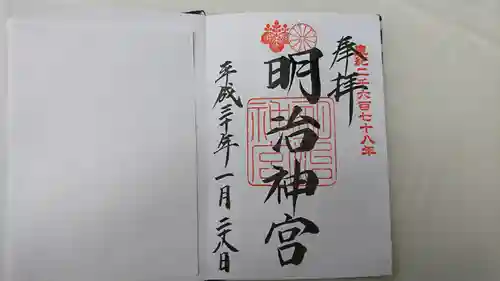 皇紀二千六百七十八年
奉拝
明治神宮
平成三十年一月二十八日
明治神宮